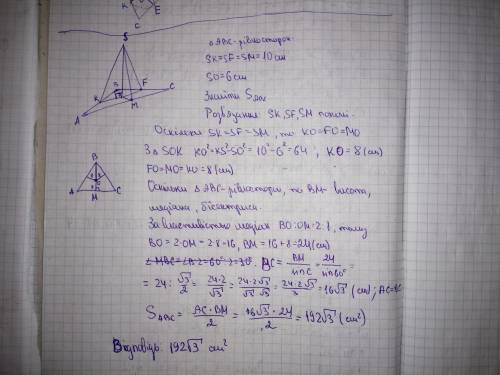 K E
C
S
△ABC - рівностор.
SK=SF=SM=10см
SO=6см
Знайти S
Розв'язання: SK, SF, SM похилі.
Оскільки SK=SF=SM, то KO=FO=MO
З △SOK KO²=KS²-SO²=10²-6²=64, KO=8(см)
FO=MO=KO=8(см)
Оскільки △ABC-рівностор, то BM- висота,
медіана, бісектриса.
За властивістю медіан BO:OM=2:1, тому
BO=2·OM=2·8=16, BM=16+8=24(см)
∠MBC=∠B:2=60°:2=30°. BC = BM/sinC = 24/sin60° =
= 24 : √3/2 = 24·2/√3 = 24·2√3/√3·√3 = 24·2√3/3 = 16√3 (см); AC=BC
S△ABC = AC·BM/2 = 16√3·24/2 = 192√3 (см²)
Відповідь: 192√3 см²
B
F
C
K
O
M
A
B
O
A M C